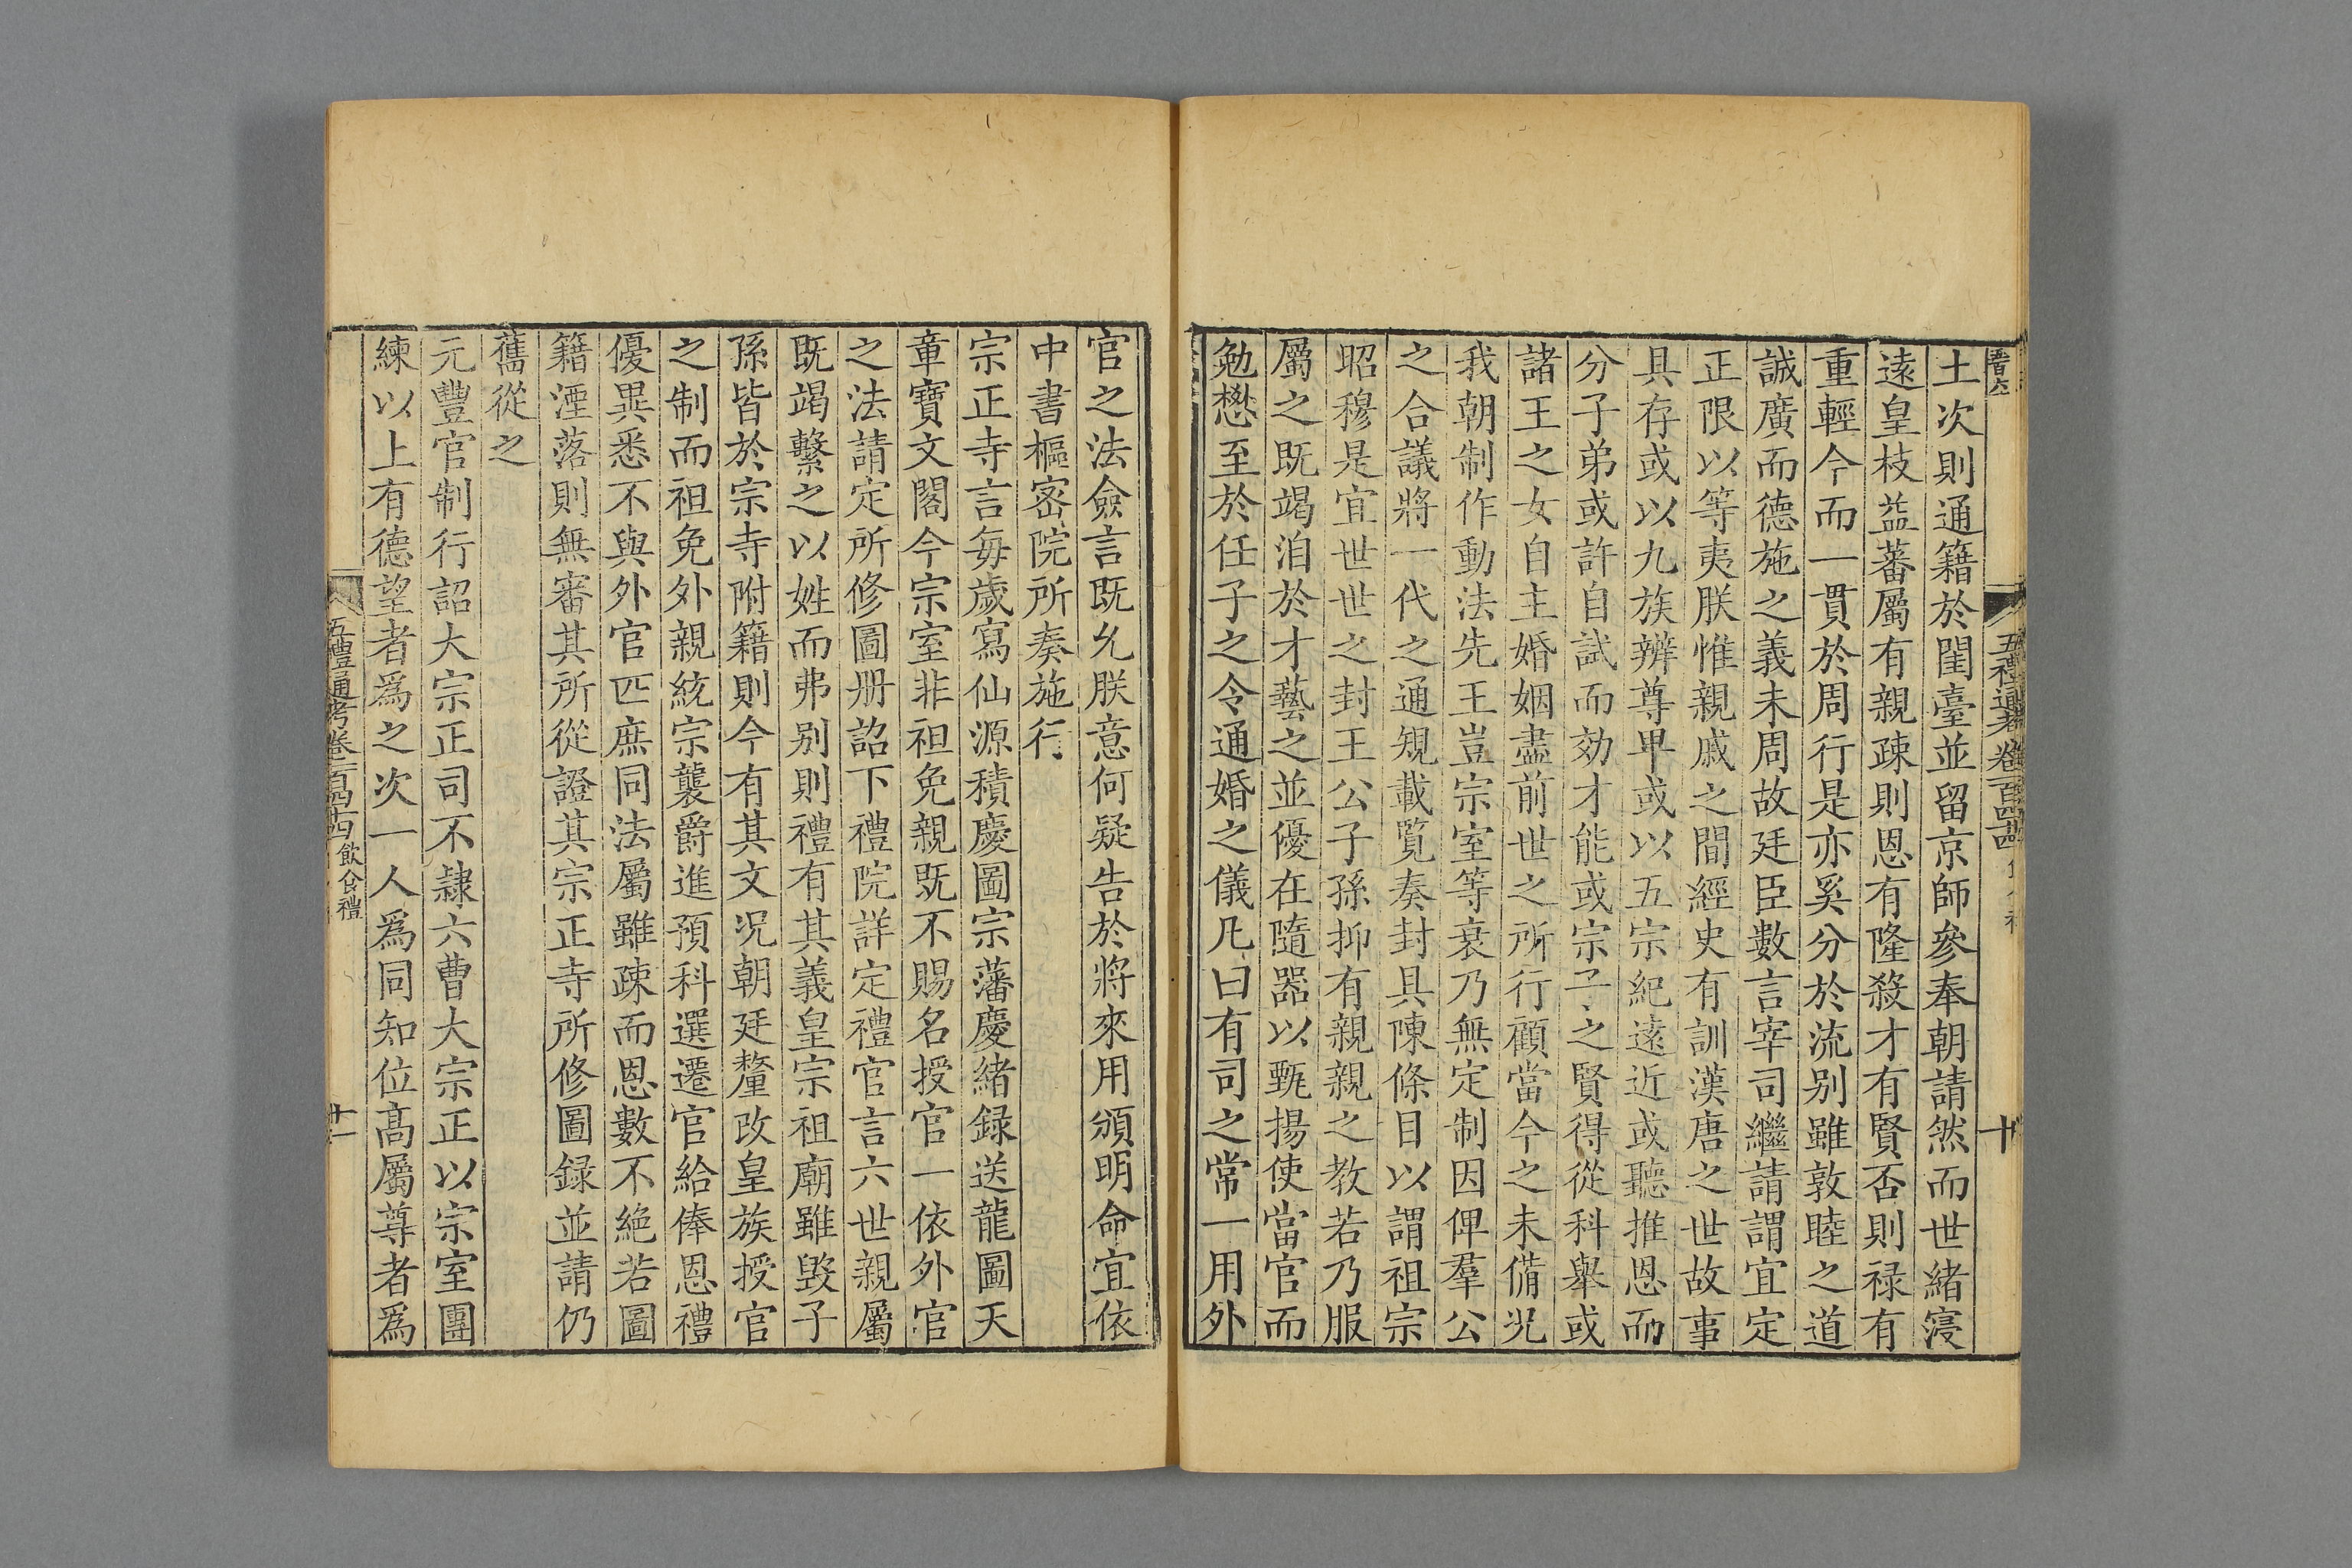 五禮通考卷一百四十四
十
土次則通籍於閨臺並留京師參奉朝請然而世緒寖
遠皇枝益蕃屬有親疎則恩有隆殺才有賢否則禄有
重輕今而一貫於周行是亦奚分於流别雖敦睦之道
誠廣而德施之義未周故廷臣數言宰司繼請謂宜定
正限以等夷朕惟親戚之間經史有訓漢唐之世故事
具存或以九族辨尊卑或以五宗紀遠近或聽推恩而
分子弟或許自試而効才能或宗子之賢得從科舉或
諸王之女自主婚姻盡前世之所行顧當今之未備況
我朝制作動法先王豈宗室等衰乃無定制因俾羣公
之合議將一代之通規載覧奏封具陳條目以謂祖宗
昭穆是宜世世之封王公子孫抑有親親之教若乃服
屬之既竭洎於才藝之並優在隨器以甄揚使當官而
勉懋至於任子之令通婚之儀凡曰有司之常一用外
官之法僉言既允朕意何疑告於將來用頒明命宜依
中書樞密院所奏施行
宗正寺言每歲寫仙源積慶圖宗藩慶緒録送龍圖天
章寶文閣今宗室非袒免親既不賜名授官一依外官
之法請定所修圖册詔下禮院詳定禮官言六世親屬
既竭繫之以姓而弗别則禮有其義皇宗祖廟雖毀子
孫皆於宗寺附籍則今有其文况朝廷釐改皇族授官
之制而袒免外親統宗襲爵進預科選遷官給俸恩禮
優異悉不與外官匹庶同法屬雖疎而恩數不絶若圖
籍湮落則無審其所從證其宗正寺所修圖録並請仍
舊從之
元豐官制行詔大宗正司不隸六曹大宗正以宗室團
練以上有德望者爲之次一人爲同知位髙屬尊者爲
五禮通考卷一百四十四 飲食禮
十一